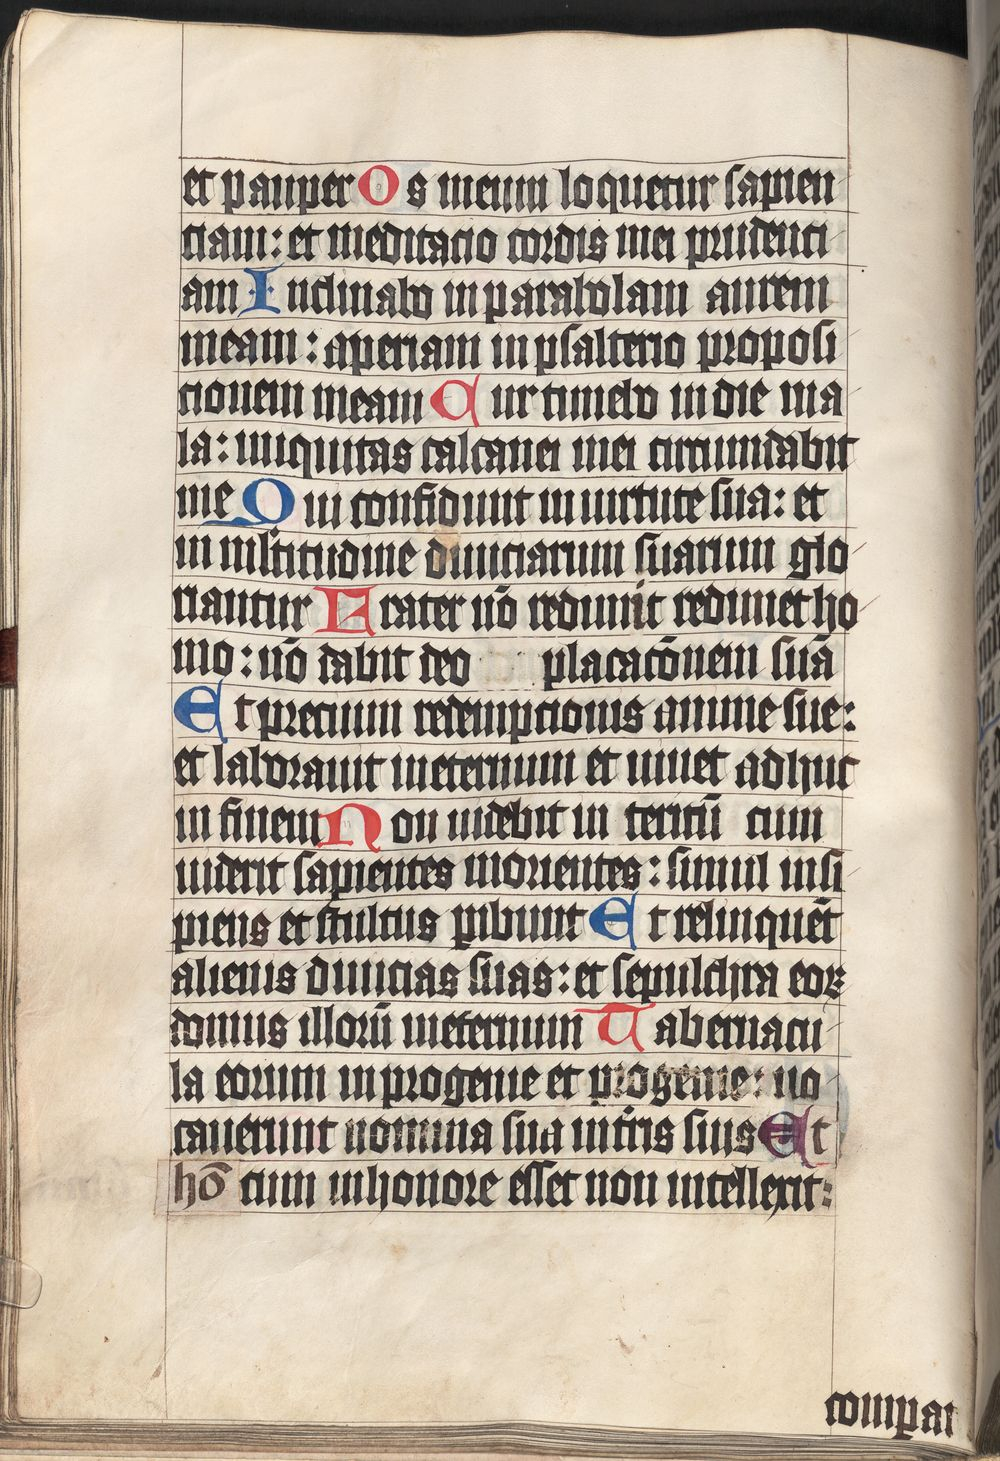 et pauper Os meum loquetur sapien
ciam: et meditacio cordis mei prudenci
am Inclinabo in parabolam aurem
meam: aperiam in psalterio proposi
cionem meam Cur timebo in die ma
la: iniquitas calcanei mei circumdabit
me Qui confidunt in uirtute sua: et
in mĺtitudine diuiciarum suarum glo
riantur Frater nō redimit redimet ho
mo: nō dabit deo placacōnem suā
Et precium redempcionis anime sue:
et laborauit ineternum et uiuet adhuc
in finem Non uidebit in teritū cum
uiderit sapientes morientes: simul insi
piens et stultus pibunt Et relinquēt
alienis diuicias suas: et sepulchra eoꝝ
domus illorū ineternum Tabernacu
la eorum in progenie et progenie: uo
cauerunt nomina sua in tr̄is suis Et
hō cum in honore esset non intellexit:
compar